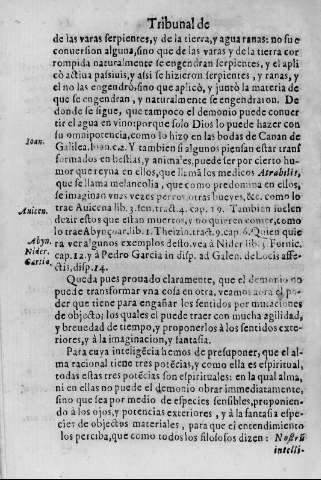 Tribunal de
de las varas serpientes, y de la tierra, y agua ranas: no fue
conuersion alguna, sino que de las varas y de la tierra cor
rompida naturalmente se engendran serpientes, y el apli
cò actiua passiuis, y assi se hizieron serpientes, y ranas, y
el no las engendrò, sino que aplicò, y juntò la materia de
que se engendran, y naturalmente se engendraron. De
donde se sigue, que tampoco el demonio puede conuer
tir el agua en vino: porque solo Dios lo puede hazer con
su omnipotencia, como lo hizo en las bodas de Canan de
Ioan.
Galilea. Ioan. c.2. Y tambien si algunos piensan estar trans
formados en bestias, y animales, puede ser por cierto hu-
mor que reyna en ellos, que llamã los medicos Atrabilis,
que se llama melancolia, que como predomina en ellos,
se imaginan vnas vezes perros, otras bueyes, &c. como lo
Auicen.
trae Auicena lib. 3. fen. tract. 4. cap. 19. Tambien suelen
dezir estos que estan muertos, y no quieren comer, como
Abyn.
lo trae Abynçoar, lib. 1. Theizin. tract. 9. cap. 6. Quien quie
Nider.
ra ver algunos exemplos desto, vea à Nider lib. 3. Fornic.
Garcia.
cap. 12. y à Pedro Garcia in disp. ad Galen. de Locis affe-
ctis, disp. 14.
Queda pues prouado claramente, que el demonio no
puede transformar vna cosa en otra, veamos aora el po-
der que tiene para engañar los sentidos por mutaciones
de objectos; los quales el puede traer con mucha agilidad,
y breuedad de tiempo, y proponerlos à los sentidos exte-
riores, y à la imaginacion, y fantasia.
Para cuya inteligẽcia hemos de presuponer, que el al-
ma racional tiene tres potẽcias, y como ella es espiritual,
todas estas tres potẽcias son espirituales: en la qual alma,
ni en ellas no puede el demonio obrar immediatamente,
sino que sea por medio de especies sensibles, proponien-
do à los ojos, y potencias exteriores, y à la fantasia espe-
cies de objectos materiales, para que el entendimiento
los perciba, que como todos los filosofos dizen: Nostrũ
intelli-